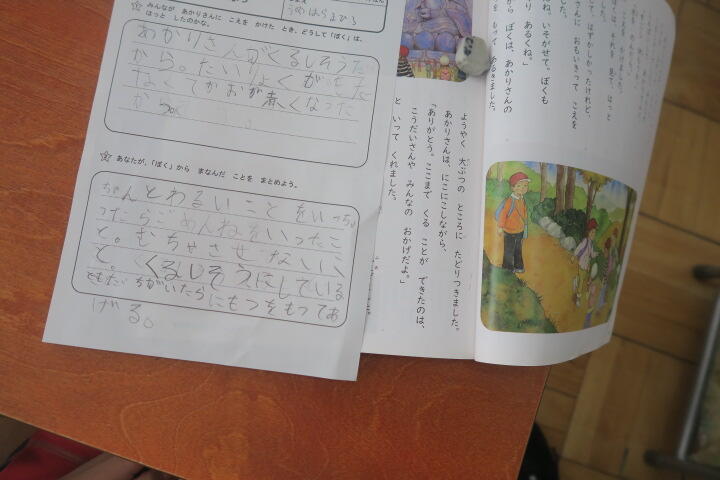 みんなが あかりさんに こえを かけた とき、どうして「ぼく」は、
ほっと したのかな。
あかりさんがくるしそうだ
から。たいりょくがもた
なくてかおが青くなった
から。
あなたが、「ぼく」から まなんだ ことを まとめよう。
ちゃんとわるいことをいっちゃ
ったらごめんねをいったこ
と。むちゃさせないこ
と。くるしそうにしている
ともだちがいたらにもつをもってあ
げる。
ね、いそがせて。ぼくも
あるくね。」
から ぼくは、あかりさんの
もって あるきました。
ようやく 大ぶつの ところに たどりつきました。
あかりさんは、にこにこしながら、
「ありがとう。ここまで くる ことが できたのは、
こうだいさんや みんなの おかげだよ。」
と いって くれました。